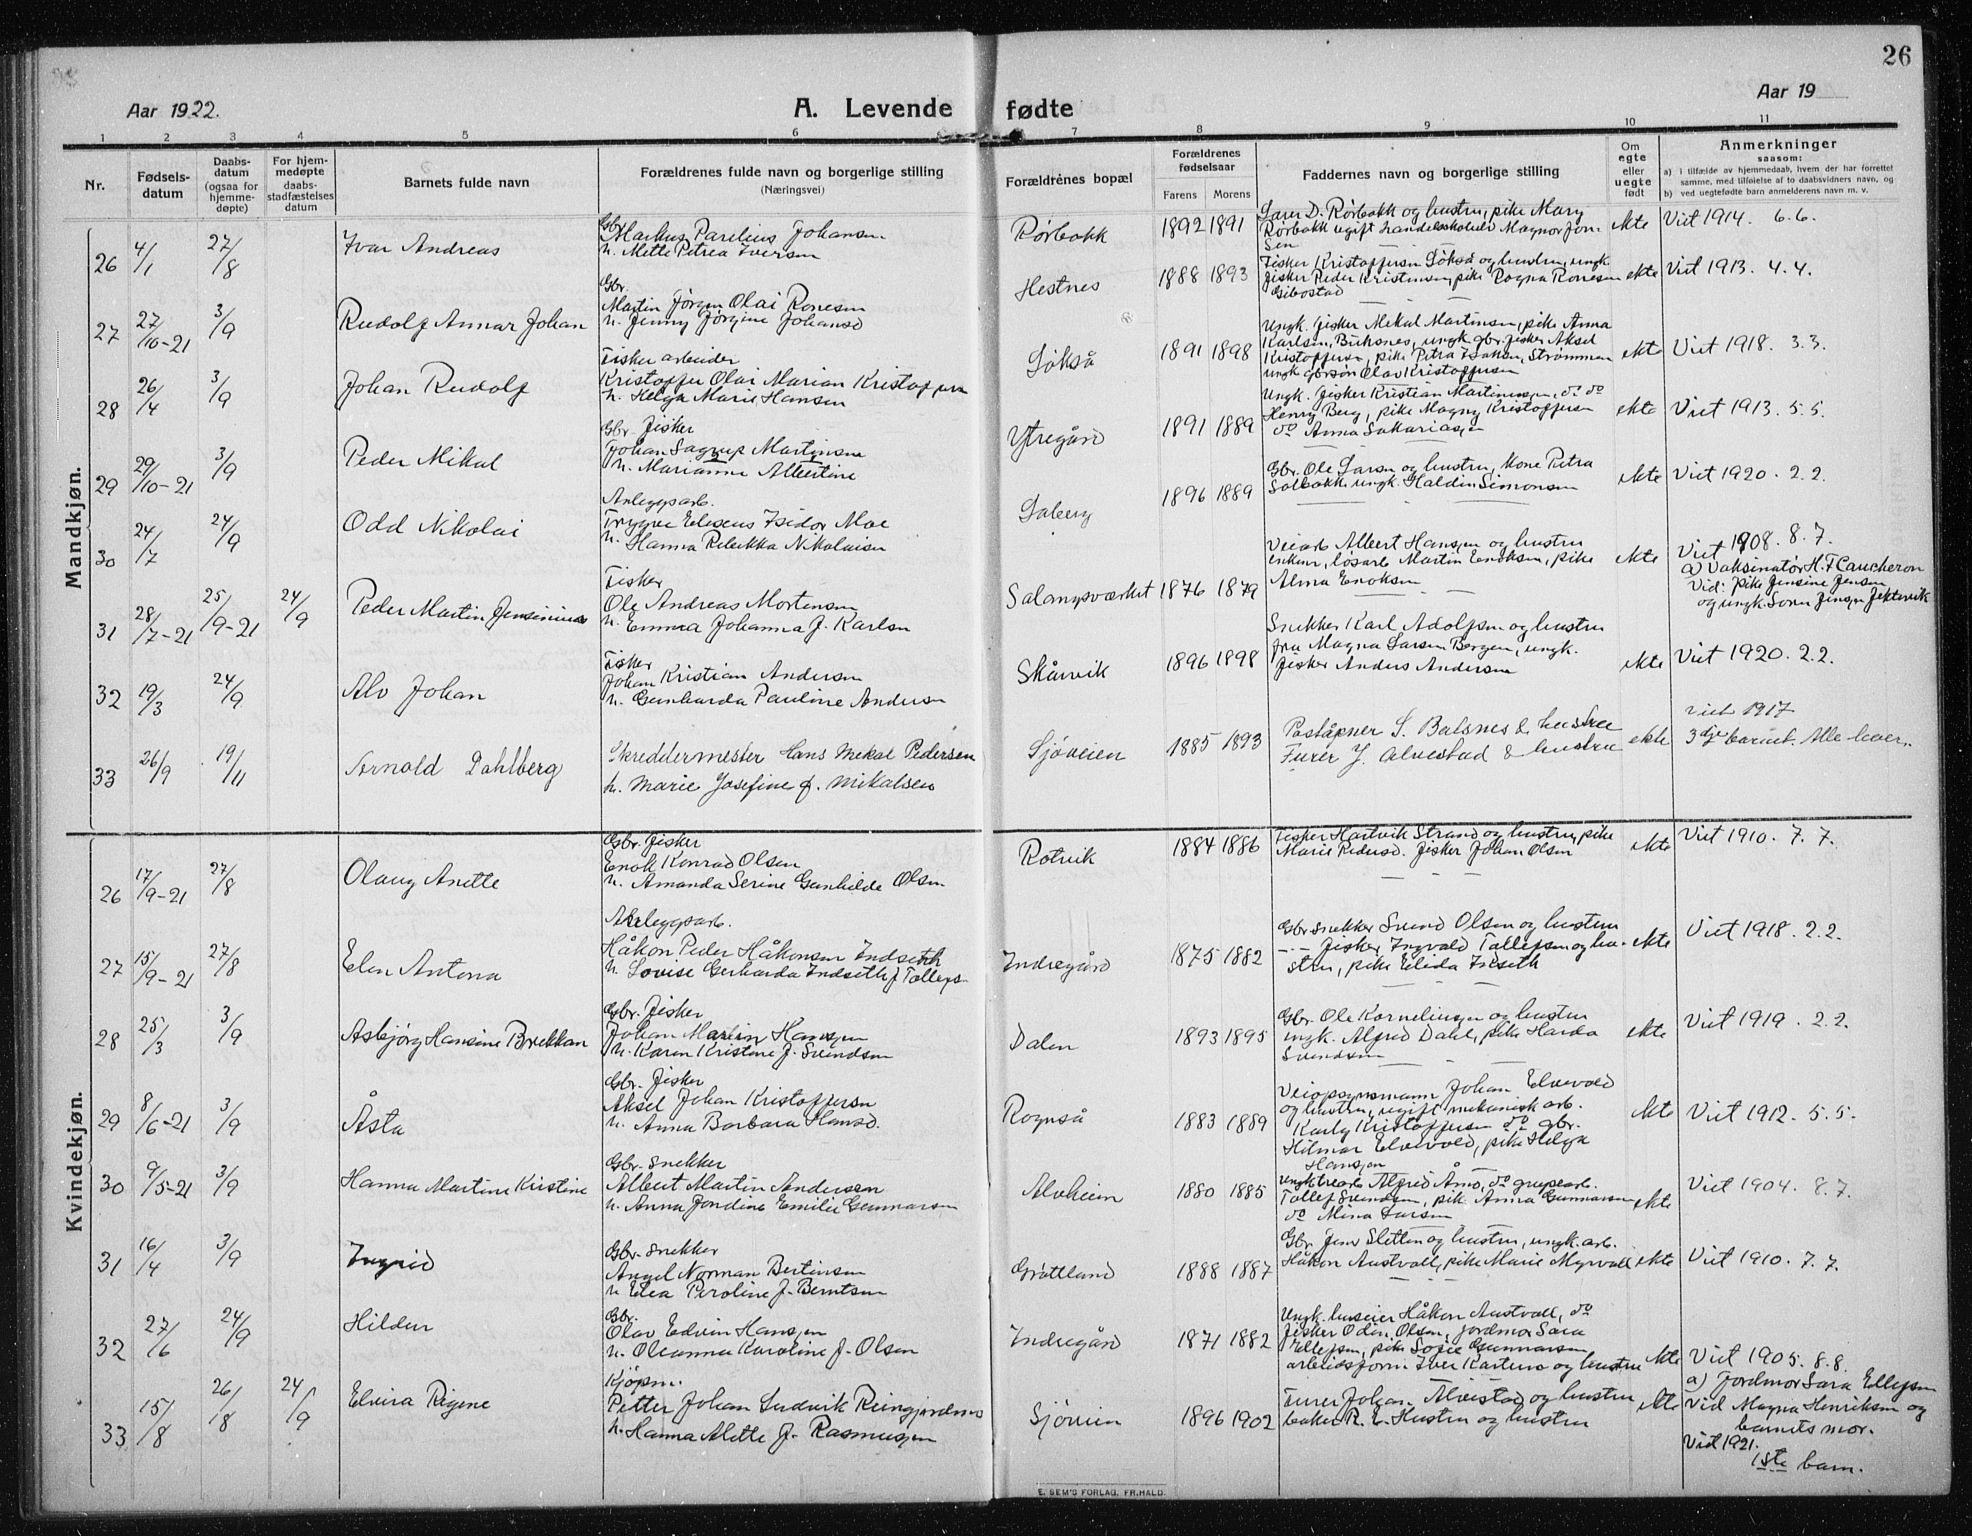 26
Aar 1922.
A. Levende fødte
Aar 19
1 2 3 4 5 6 7 8 9 10 11
Nr.
Fødsels-
datum
Daabs-
datum
(ogsaa for
hjemme-
døpte)
For hjem-
medøpte
daabs-
stadfæstelses
datum
Barnets fulde navn
Forældrenes fulde navn og borgerlige stilling
(Næringsvei)
Forældrenes bopæl
Forældrenes
fødselsaar
Farens Morens
Faddernes navn og borgerlige stilling
Om
egte
eller
uegte
født
Anmerkninger
saasom:
a) i tilfælde av hjemmedaab, hvem der har forrettet
samme, med tilføielse af to daabsvidners navn, og
b) ved uegtefødte barn anmelderens navn m. v.
Mandkjøn.
26 4/1 27/8 Ivar Andreas
Gbr.
Markus Parelius Johansen
h. Mette Petrea Iversen
Rørbakk 1892 1891
Lars D. Rørbakk og hustru, pike Mary
Rørbakk ugift handelsbokh. Magnor Jen-
sen
ekte Viet 1914. 6.6.
27 27/10-21 3/9 Rudolf Annar Johan
Gbr.
Martin Jørgen Olai Ronesen
h. Jenny Jørgine Johansd
Hestnes 1888 1893
Fisker Kristoffersen Løkså og hustru, ungk.
fisker Peder Kristensen, pike Ragna Ronesen
Gibostad
ekte Viet 1913. 4.4.
28 26/4 3/9 Johan Rudolf
Fisker arbeider
Kristoffer Olai Marian Kristoffersen
h. Helga Marie Hansen
Løkså 1891 1898
Ungk. fisker Mekal Martinsen, pike Anna
Karlsen, Buksnes, ungk. gbr. fisker Aksel
Kristoffersen, pike Petra Isaksen, Strømmen
ungk gbrsøn Olav Kristoffersen
ekte Viet 1918. 3.3.
29 29/10-21 3/9 Peder Mikal
Gbr. fisker
Johan Martinsen
h. Marianne Albertine
Ytregård 1891 1889
Ungk. fisker Kristian Martinussen, do do
Henry Berg, pike Magny Kristoffersen
do Anna Sakariassen
ekte Viet 1913. 5.5.
30 24/7 24/9 Odd Nikolai
Anleggsarb.
Trygve Eliseus Isidor Moe
h. Hanna Rebekka Nikolaisen
Laberg 1896 1889
Gbr. Ole Larsen og hustru, kone Petra
Solbakk, ungk. Haldin Simonsen
ekte Viet 1920. 2.2.
31 28/7-21 25/9-21 24/9 Peder Martin Jensinius
Fisker
Ole Andreas Mortensen
h. Emma Johanna f. Karlsen
Salangsverket 1876 1879
Veiarb Albert Hansen og hustru
enkem, løsarb Martin Enoksen, pike
Alma Enoksen
ekte Viet 1908. 8.7.
a) Vaksinatør H. F. Caucheron
Vid: pike Jensine Jensen
og ungk. Søren Jensen Jektevik
32 19/3 24/9 Alv Johan
Fisker
Johan Kristian Andersen
h. Gunharda Pauline Andersen
Skårvik 1896 1898
Snekker Karl Adolfsen og hustru
fru Magna Larsen Bergen, ungk.
fisker Anders Andersen
ekte Viet 1920. 2.2.
33 26/9 19/11 Arnold Dahlberg
Skreddermester Hans Mekal Pedersen
h. Marie Josefine f. Mikalsen
Sjøveien 1885 1893
Poståpner S. Balsnes & hustru
Furer J. Alvestad & hustru
ekte viet 1917
3dje barnet. Alle lever.
Kvindekjøn.
26 17/9-21 27/8 Olaug Anette
Gbr. fisker
Enok Konrad Olsen
h. Amanda Serine Gunhilde Olsen
Rotvik 1884 1886
Fisker Hartvik Strand og hustru, pike
Marie Pedersd. fisker Johan Olsen
ekte Viet 1910. 7.7.
27 15/9-21 27/8 Elen Antona
Anleggsarb.
Håkon Peder Håkonsen Indseth
h. Lovise Gerharda Indseth f Tollefs-
Indregård 1875 1882
Gbr snekker Svend Olsen og hustru
fisker Ingvald Tollefsen og hu-
stru, pike Elida Indseth
ekte Viet 1918. 2.2.
28 25/3 3/9 Asbjørg Hansine Brekkan
Gbr. fisker
Johan Martin Hansen
h. Karen Kristine f. Svendsen
Dalen 1893 1895
Gbr. Ole Korneliussen og hustru
ungk. Alfred Dahl, pike Harda
Svendsen
ekte Viet 1919. 2.2.
29 8/6-21 3/9 Åsta
Gbr. fisker
Aksel Johan Kristoffersen
h. Anna Barbara Hansd.
Rognså 1883 1889
Veiopsynsmann Johan Elvevold
og hustru, ugift mekanisk arb.
Karly Kristoffersen do gbr.
Hilmar Elvevold, pike Helga
Hansen
ekte Viet 1912. 5.5.
30 9/5-21 3/9 Hanna Martine Kristine
Gbr. snekker
Albert Martin Andersen
h. Anna Jondine Emilie Gunnarsen
Alvheim 1880 1885
Ungk veiarb Alfred Åmo, do grubearb.
Tollef Svendsen, pike Anna Gunnarsen
do Mina Larsen
ekte Viet 1904. 8.7.
31 16/4 3/9 Ingrid
Gbr. snekker
Angel Norman Bertinsen
h Elea Peroline f. Berntsen
Grøttland 1888 1887
Gbr. Jens Sletten og hustru, ungk. arb.
Håkon Austvoll, pike Marie Myrvoll
ekte Viet 1910. 7.7.
32 27/6 24/9 Hildur
Gbr.
Olav Edvin Hansen
h. Oleanna Karoline f. Olsen
Indregård 1871 1882
Ungk. huseier Håkon Austvoll, do
fisker Odin Olsen, jordmor Sara
Ellefsen, pike Sofie Gunnarsen
arbeidsform. Iver Karlsen og hustru
ekte Viet 1905. 8.8.
33 15/8 26/18 24/9 Elvira Rigene
Kjøpm.
Petter Johan Ludvik Reingjerdnes
h. Hanna Alette f. Rasmussen
Sjøveien 1896 1902
Furer Johan Alvestad og hustru
baker R. E. Hustru og hustru
ekte a) Jordmor Sara Ellefsen
Vid Magna Henriksen og
barnets mor.
Viet 1921.
1ste barn.
E. SEM'S FORLAG, FR.HALD.